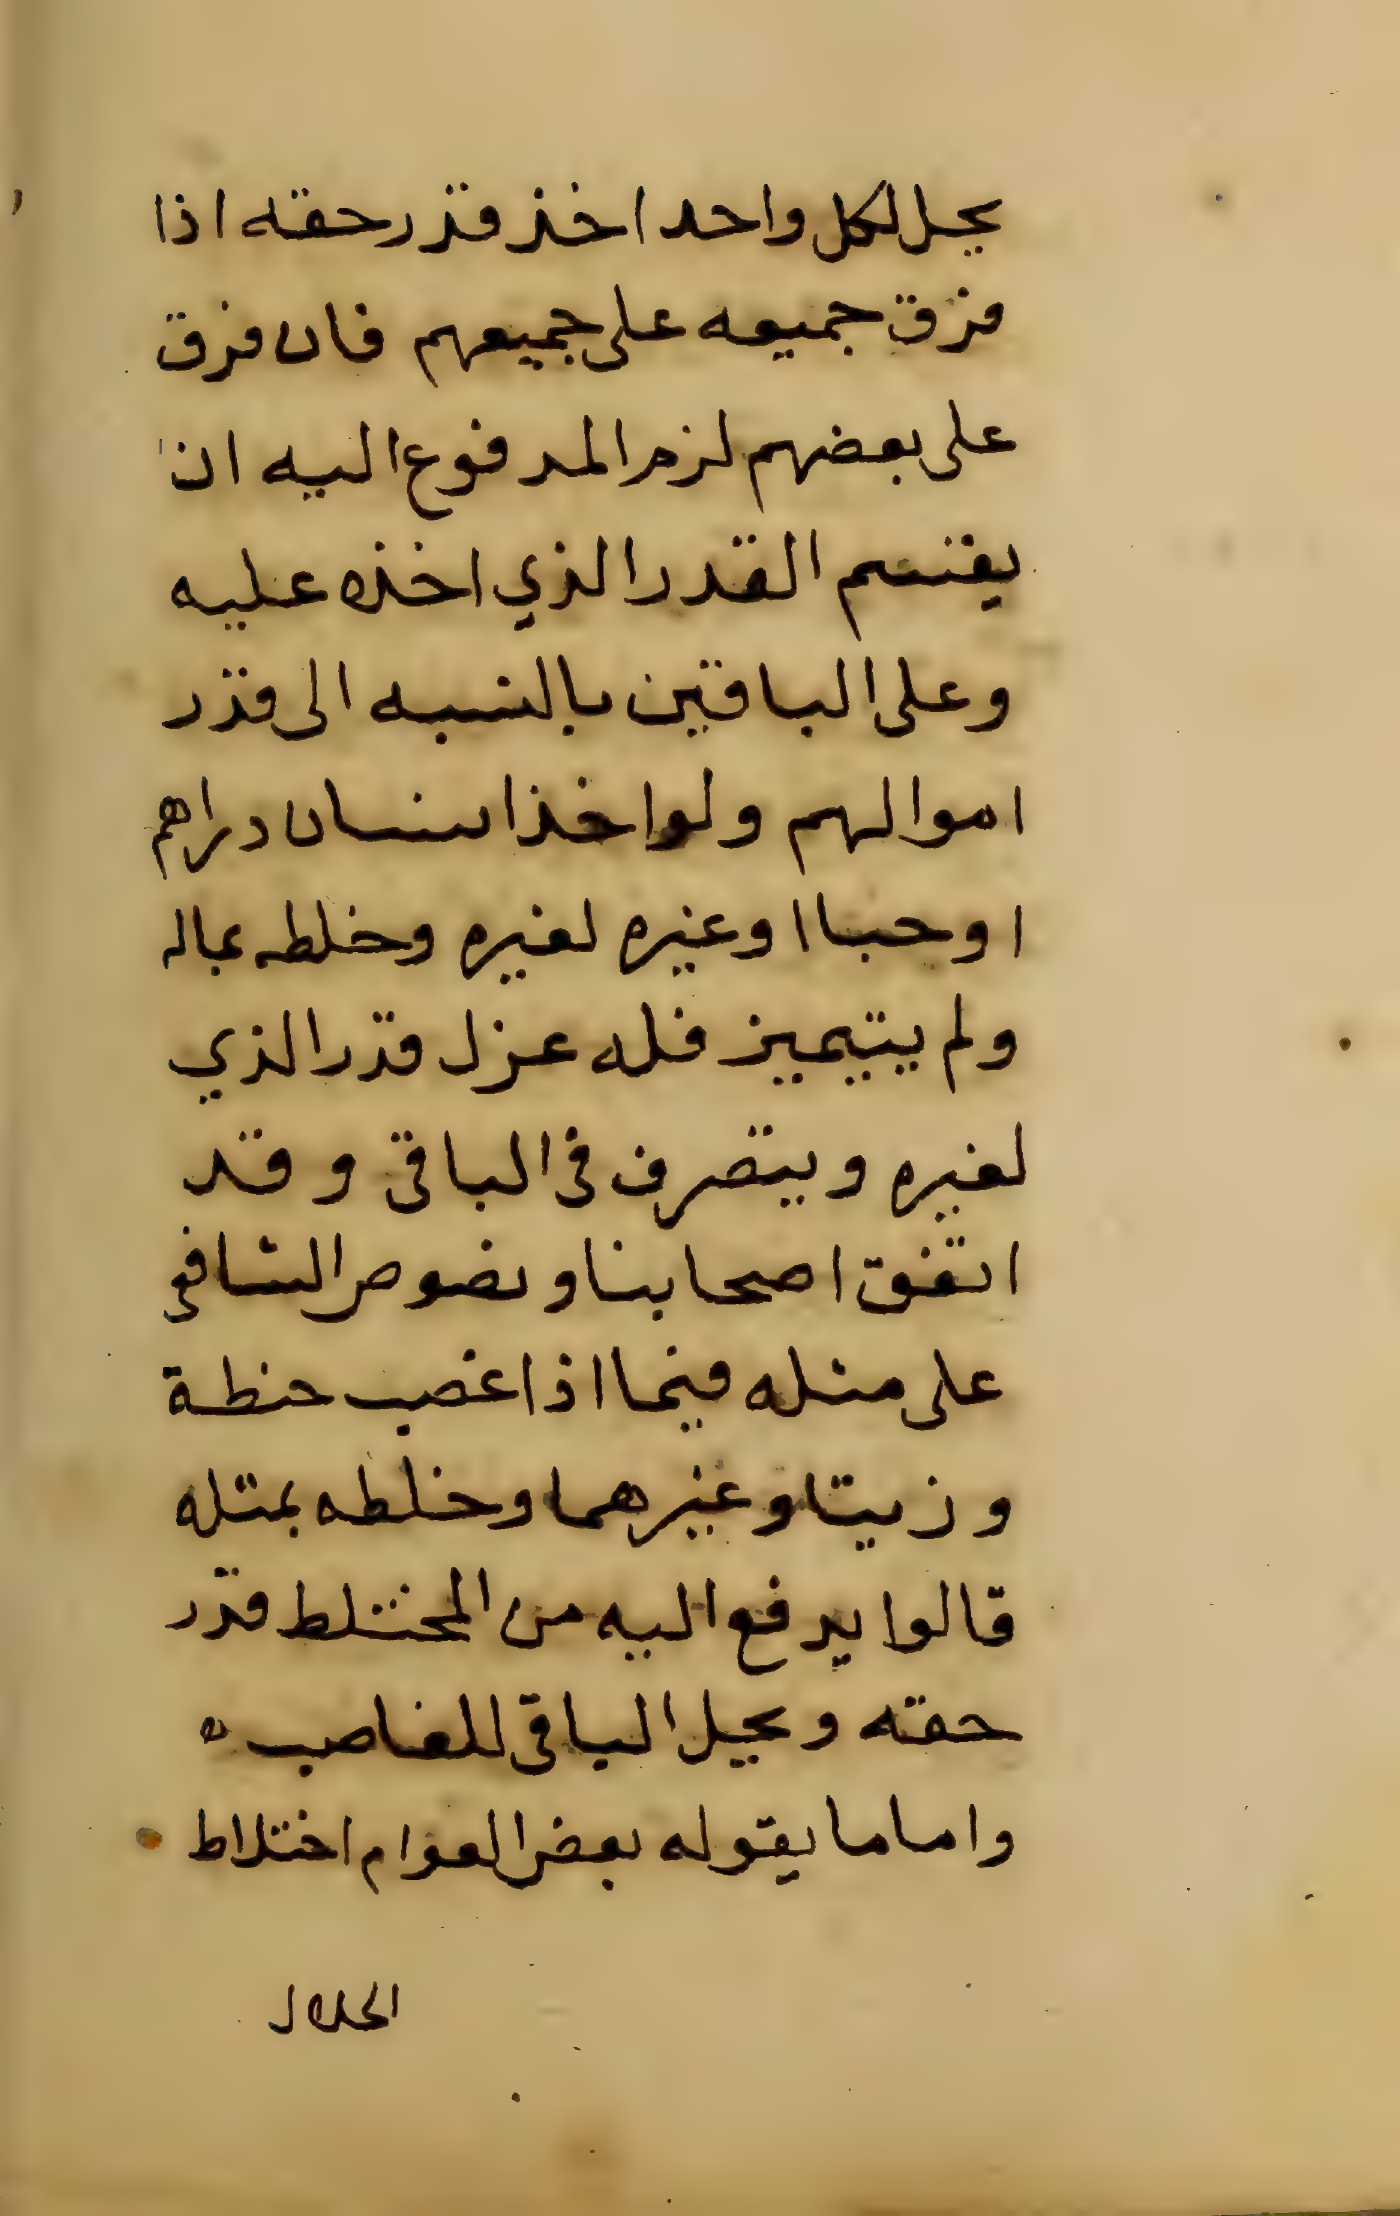 يحل لكل واحد اخذ قدر حقه اذا
فرق جميعه على جميعهم فان فرق
على بعضهم لزم المدفوع اليه ان
يقسم القدر الذي اخذه عليه
وعلى الباقين بالنسبه الى قدر
اموالهم ولو اخذ انسان دراهم
او حبا او غيره لغيره وخلطه بماله
ولم يتميز فله عزل قدر الذي
لغيره ويتصرف في الباقي وقد
اتفق اصحابنا ونصوص الشافعي
على مثله فيما اذا غصب حنطة
وزيتا وغيرهما وخلطه بمثله
قالوا يدفع اليه من المختلط قدر
حقه ويحل الباقي للغاصب ه
واما ما يقوله بعض العوام اختلاط
الحلال